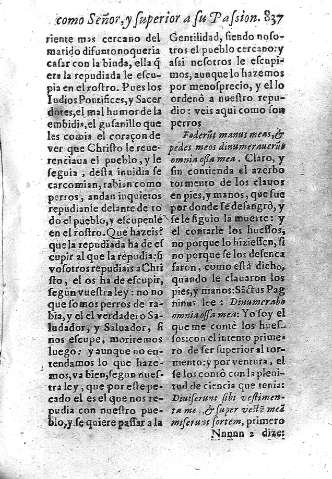 como Señor, y superior a su Passion. 837
riente mas cercano del
marido difunto no queria
casar con la biuda, ella q̃
era la repudiada le escu-
pia en el rostro. Pues los
Iudios Pontifices, y Sacer
dotes, el mal humor de la
embidia, el gusanillo que
les comia el coraçon de
ver que Christo le reue-
renciaua el pueblo, y le
seguia, desta inuidia se
carcomian, rabian como
perros, andan inquietos
repudianle delante de to
do el pueblo, y escupenle
en el rostro. Que hazeis?
que la repudiada ha de es
cupir al que la repudia: si
vosotros repudiais a Chri
sto, el os ha de escupir,
segun vuestra ley: no no
que somos perros de ra-
bia, y el el verdadero Sa-
ludador, y Saluador, si
nos escupe, moriremos
luego: y aunque no en-
tendamos lo que haze-
mos, va bien, segun nues-
tra ley, que por este pe-
cado el es el que nos re-
pudia con nuestro pue-
blo, y se quiere passar a la
Gentilidad, siendo noso-
tros el pueblo cercano: y
assi nosotros le escupi-
mos, aunque lo hazemos
por menosprecio, y el lo
ordenò a nuestro repu-
dio: veis aqui como son
perros
Foderũt manus meas, &
pedes meos dinumerauerũt
omnia ossa mea. Claro, y
sin contienda el azerbo
tormento de los clauos
en pies, y manos, que fue
por donde se desangrò, y
se le siguio la muerte: y
el contarle los huessos,
no porque lo hiziessen, si
no porque se los desenca
saron, como està dicho,
quando le clauaron los
pies, y manos: Sãctus Pag
ninus lee: Dinumerabo
omnia ossa mea: Yo soy el
que me contè los hues-
sos: con el intento prime-
ro de ser superior al tor-
mento; y por ventura, el
se los contò con la pleni-
tud de ciencia que tenia:
Diuiserunt sibi vestimen-
ta mea, & super vestẽ meã
miserunt sortem, primero
Nnnnn 2 dize: